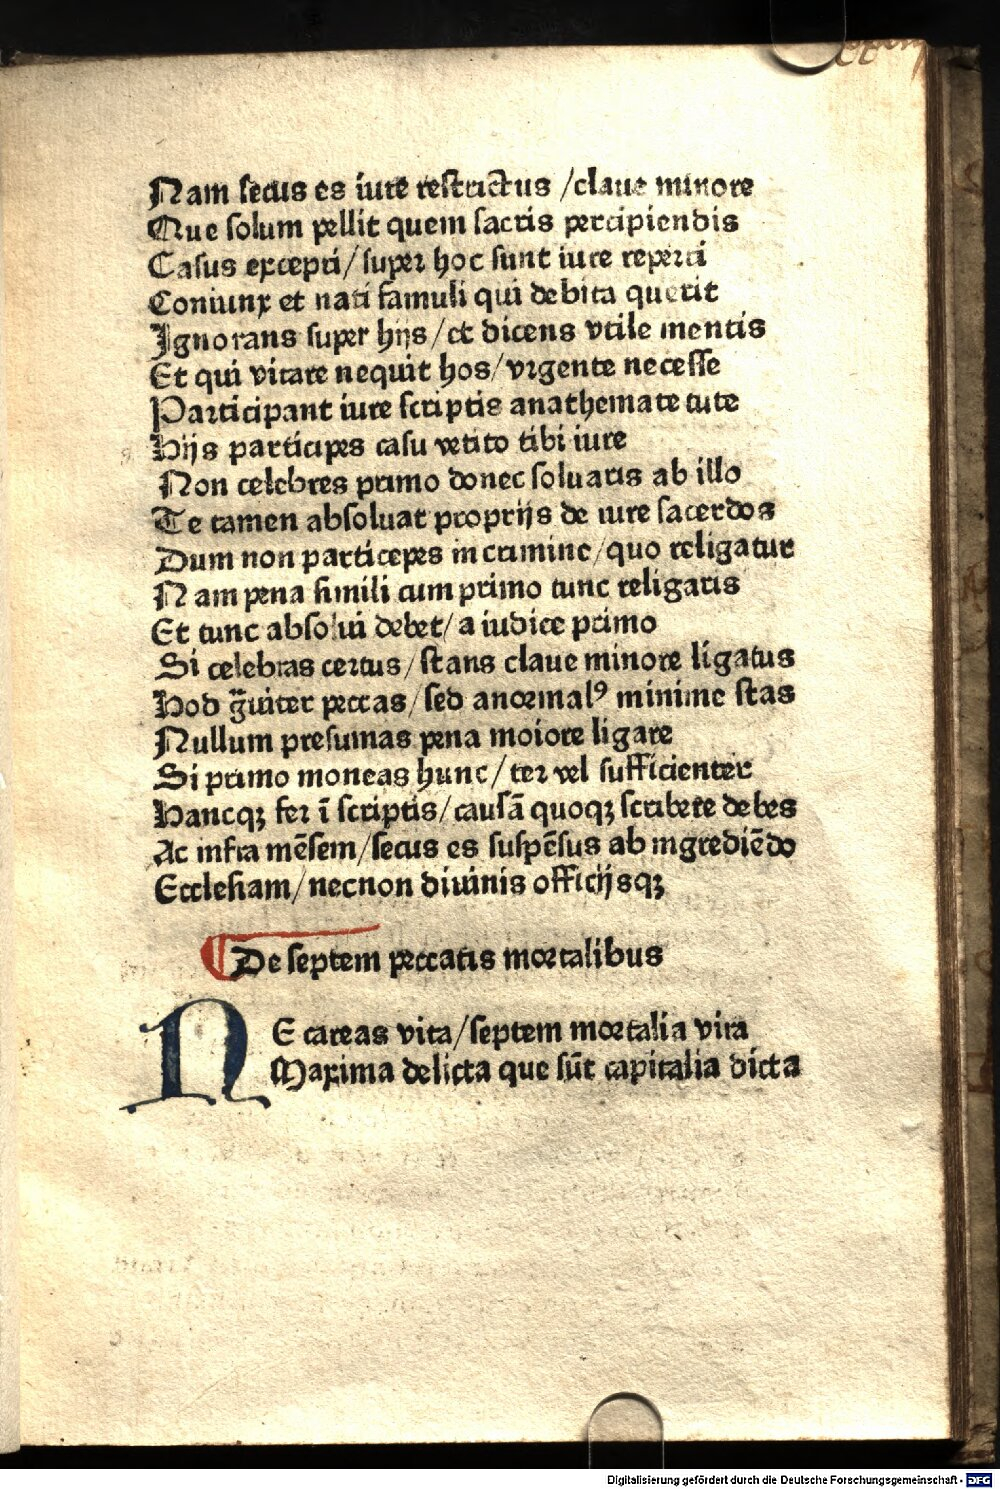 Nam secus es iure restrictus /claue minore
Que solum pellit quem sacris percipiendis
Casus excepti/super hoc sunt iure reperti
Coniunx et nati famuli qui debita querit
Ignorans super hijs/et dicens vtile mentis
Et qui vitare nequit hos/vrgente necesse
Participant iure scriptis anathemate tute
Hijs participes casu vetito tibi iure
Non celebres primo donec soluaris ab illo
Te tamen absoluat proprijs de iure sacerdos
Dum non particepes in crimine/quo religatur
Nam pena simili cum primo tunc religaris
Et tunc absolui debet/a iudice primo
Si celebras certus/stans claue minore ligatus
Hod g̃uiter peccas/sed anormalꝰ minime stas
Nullum presumas pena moiore ligare
Si primo moneas hunc/ter vel sufficienter
Hancqꝫ fer ī scriptis/causā quoqꝫ scribere debes
Ac infra mēsem/secus es suspēsus ab ingrediēdo
Ecclesiam/necnon diuinis officijsqꝫ
De septem peccatis mortalibus
NE careas vita/septem mortalia vita
Maxima delicta que sūt capitalia dicta
Digitalisierung gefördert durch die Deutsche Forschungsgemeinschaft - DFG